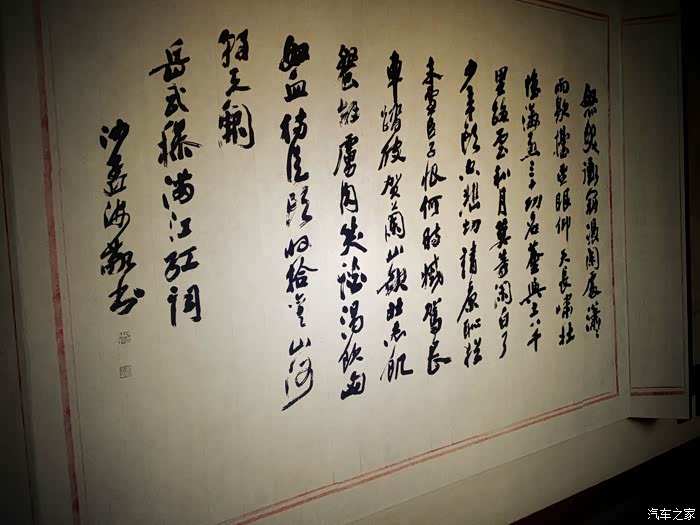 怒髮衝冠憑闌處瀟〻
雨歇擡望眼仰天長嘯壯
懷激烈三十功名塵與土八千
里路雲和月莫等閒白了
少年頭空悲切靖康恥猶
未雪臣子恨何時滅駕長
車踏破賀蘭山缺壯志飢
餐胡虜肉笑談渴飲匈
奴血待從頭收拾舊山河
朝天闕
岳武穆滿江紅詞
沙孟海敬書
汽车之家